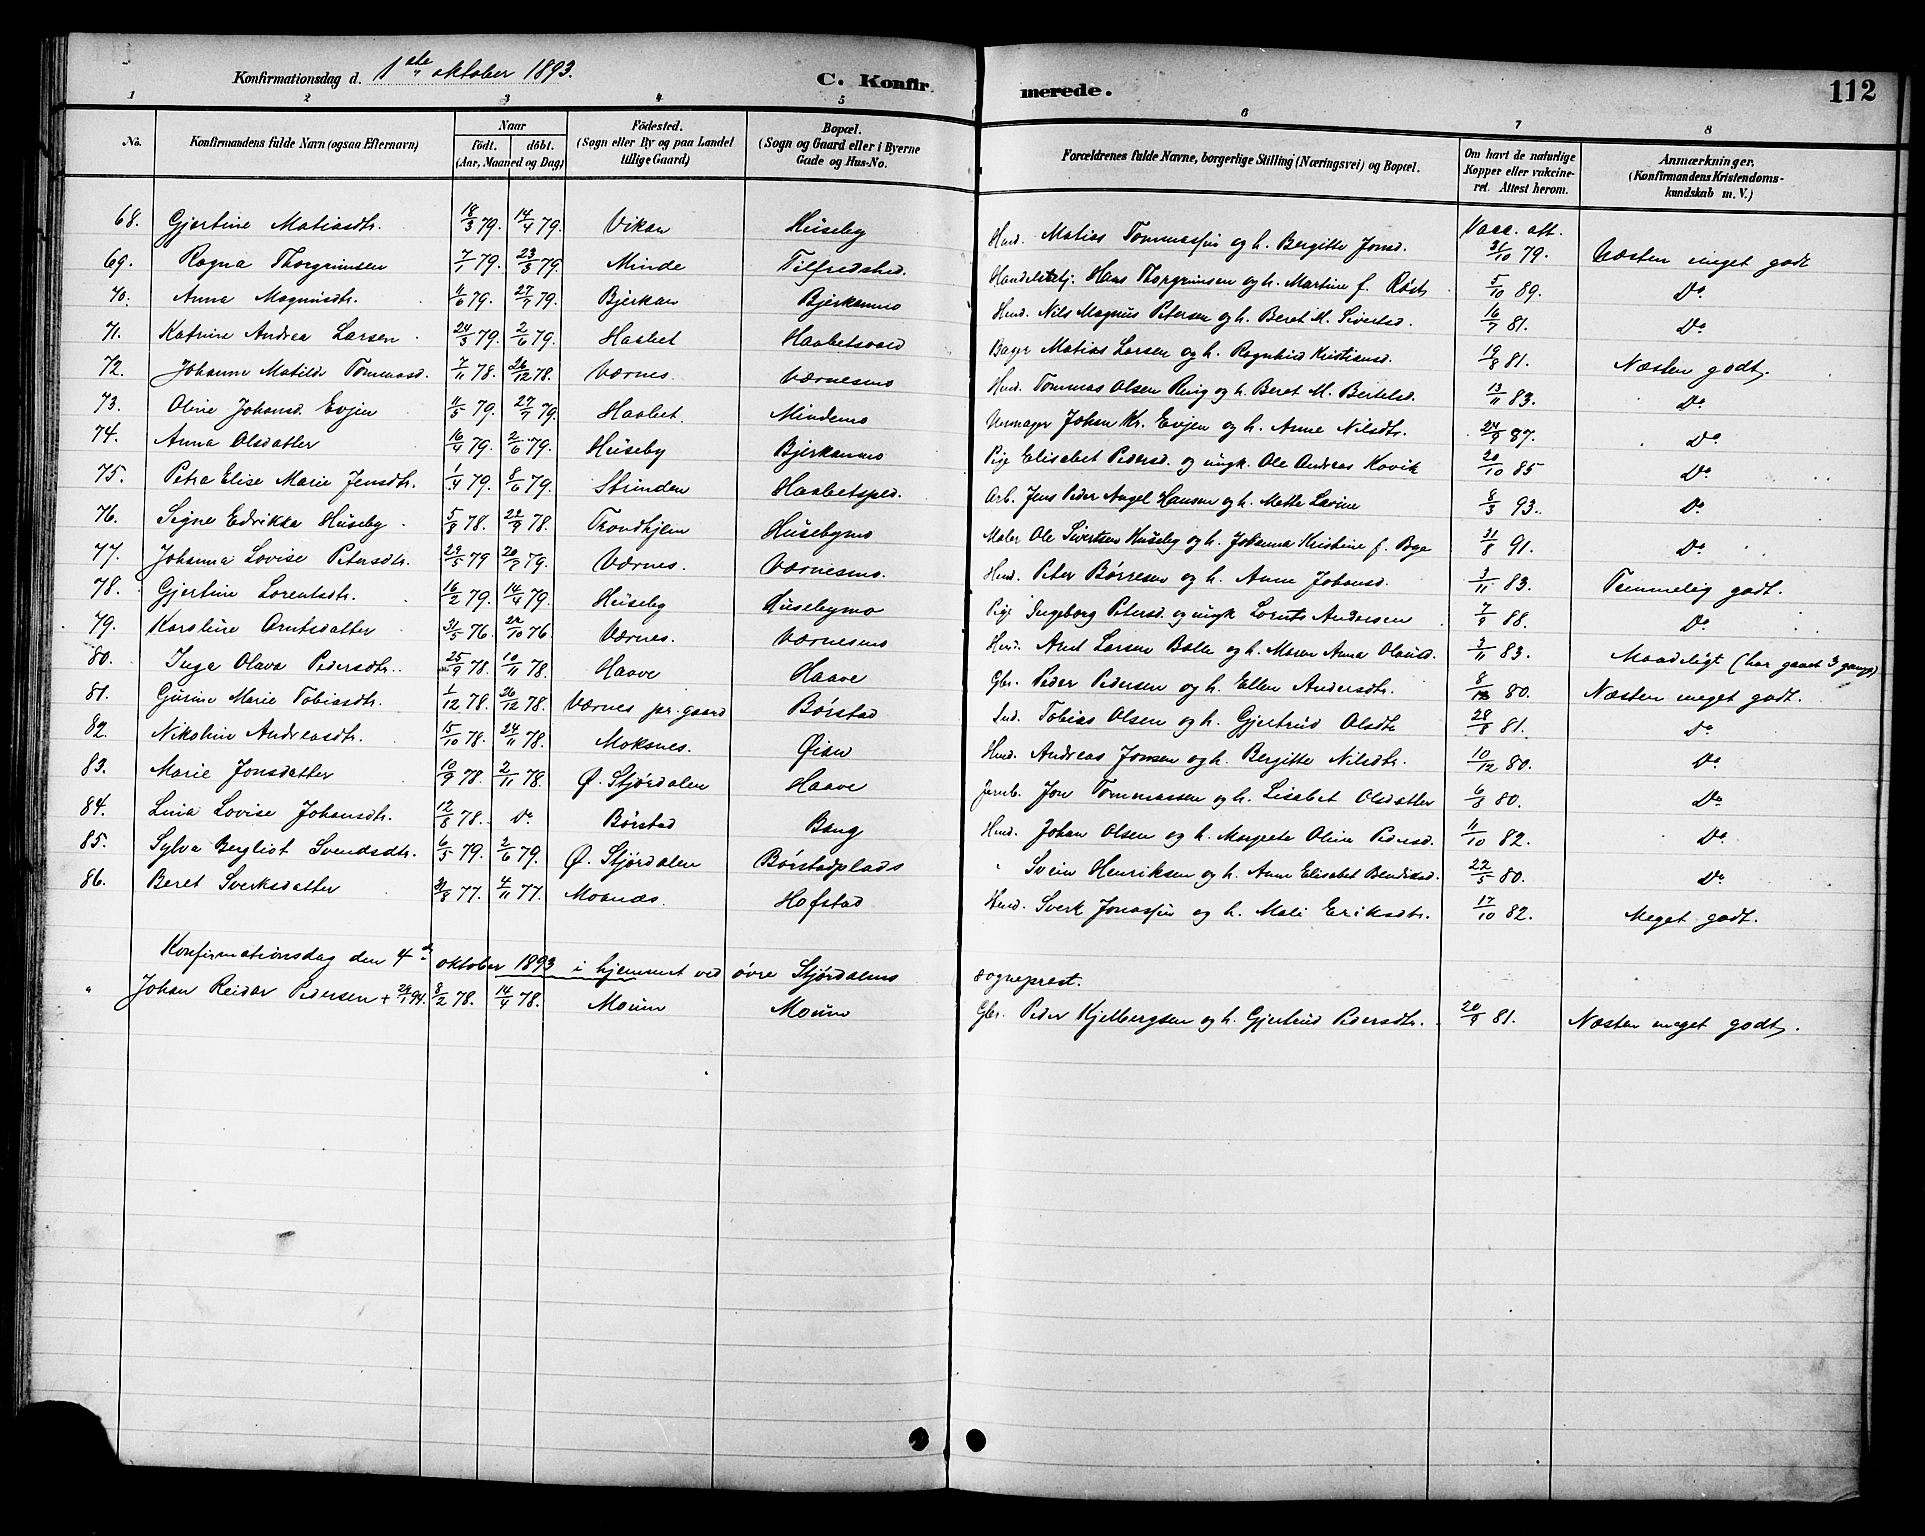 Konfirmationsdag d. 1ste oktober 1893. C. Konfirmerede. 112
1 2 3 4 5 6 7 8
No. Konfirmandens fulde Navn (ogsaa Efternavn) Naar født. døbt. (Aar, Maaned og Dag) Fødested. (Sogn eller By og paa Landet tillige Gaard) Bopæl. (Sogn og Gaard eller i Byerne Gade og Hus-No. Forældrenes fulde Navne, borgerlige Stilling (Næringsvei) og Bopæl. Om havt de naturlige Kopper eller vakcineret. Attest herom. Anmærkninger. (Konfirmandens Kristendomskundskab m. V.)
68. Gjertine Matiasdtr. 18/3 79. 14/4 79. Vikan Huseby Hmd. Matias Tommassen og h. Bergitte Jonsd. Vacc. att. 31/10 79. Næsten meget godt
69. Ragna Thorgrimsen 7/1 79. 23/3 79. Minde Tilfredshed. Handelsbetj. Hans Thorgrimsen og h. Martine f. Røst 5/10 89. Do.
70. Anna Magnusdtr. 11/6 79. 27/7 79. Bjerkan Bjerkanmo Hmd. Nils Magnus Petersen og h. Beret M. Sivertsd. 16/7 81. Do.
71. Katrine Andrea Larsen 24/3 79. 2/6 79. Haabet Haabetsvald Bager Matias Larsen og h. Ragnhild Kristiansd. 19/8 81. Næsten godt.
72. Johanne Matilde Tommasd. 7/11 78. 26/12 78. Værnes. Værnesmo Hmd. Tommas Olsen Ring og h. Beret M. Bertelsd. 13/11 83. Do.
73. Oline Johansd. Evjen 11/5 79. 27/7 79. Haabet. Mindemo Urmager Johan Kr. Evjen og h. Anne Nilsdtr. 24/9 87. Do.
74. Anna Olsdatter 16/4 79. 2/6 79. Huseby Bjerkanmo Pige Elisabet Pedersd. og ungk. Ole Andreas Hovik 20/10 85 Do.
75. Petra Elise Marie Jensdtr. 1/4 79. 8/6 79. Strinden Haabetspl. Arb. Jens Peder Angel Hansen og h. Mette Lavine 8/3 93. Do
76. Signe Edrikka Huseby 5/8 78. 22/9 78. Trondhjem Husebymo Maler Ole Sivertsen Huseby og h. Johanna Kristine f. Bye 31/8 91. Do
77. Johanna Lovise Petersdtr. 29/5 79 20/7 79. Værnes. Værnesmo. Hmd. Peter Børresen og h. Anne Johansd. 3/11 83. Temmelig godt.
78. Gjertine Lorentsdtr. 16/2 79. 14/4 79. Huseby Husebymo Pige Ingeborg Petersd. og ungk Lornts Andersen 7/9 88. Do
79. Karoline Arntsdatter 31/5 76 22/10 76 Værnes. Værnesmo Hmd. Arnt Larsen Balle og h. Maren Anna Olausd. 3/11 83. Maadeligt (har gaaet 3 gange)
80. Inga Olava Pedersdtr. 25/9 78. 10/11 78. Haave Haave Gbr. Peder Pedersen og h. Ellen Andersdtr. 8/12 80. Næsten meget godt.
81. Gurine Marie Tobiasdtr. 1/12 78. 26/12 78. Værnes pr. gaard Børstad Ind. Tobias Olsen og h. Gjertrud Olsdtr 28/8 81. Do
82. Nikoline Andreasdtr. 15/10 78. 24/11 78. Moksnes. Øian Hmd. Andreas Jonsen og h. Bergitte Nilsdtr. 10/12 80. Do.
83. Marie Jonsdatter 10/9 78. 2/11 78. Ø. Stjørdalen Haave Jernb. Jon Tommassen og h. Lisabet Olsdatter 6/8 80. Do
84. Lina Lovise Johansdtr. 12/8 78. Do. Børstad Bang Hmd. Johan Olsen og h. Margrete Olina Pedersd. 11/10 82. Do.
85. Sylva Bergliot Svendsdtr. 6/5 79. 2/6 79. Ø. Stjørdalen Børstadplads " Svein Henriksen og h. Anne Elisabet Bendiksd. 22/5 80. Do
86. Beret Sverksdatter 31/8 77. 4/11 77. Moanæs. Hofstad Hmd. Sverk Jonassen og h. Mali Eriksdtr. 17/10 82. Meget godt.
Konfirmationsdag den 4de oktober 1893 i hjemmet ved øvre Stjørdalens sogneprest.
" Johan Reidar Pedersen + 24/1 94. 8/2 78. 14/4 78. Moum Moum Gbr. Peder Kjelbergsen og h. Gjertrud Pedersdtr. 20/9 81. Næsten meget godt.